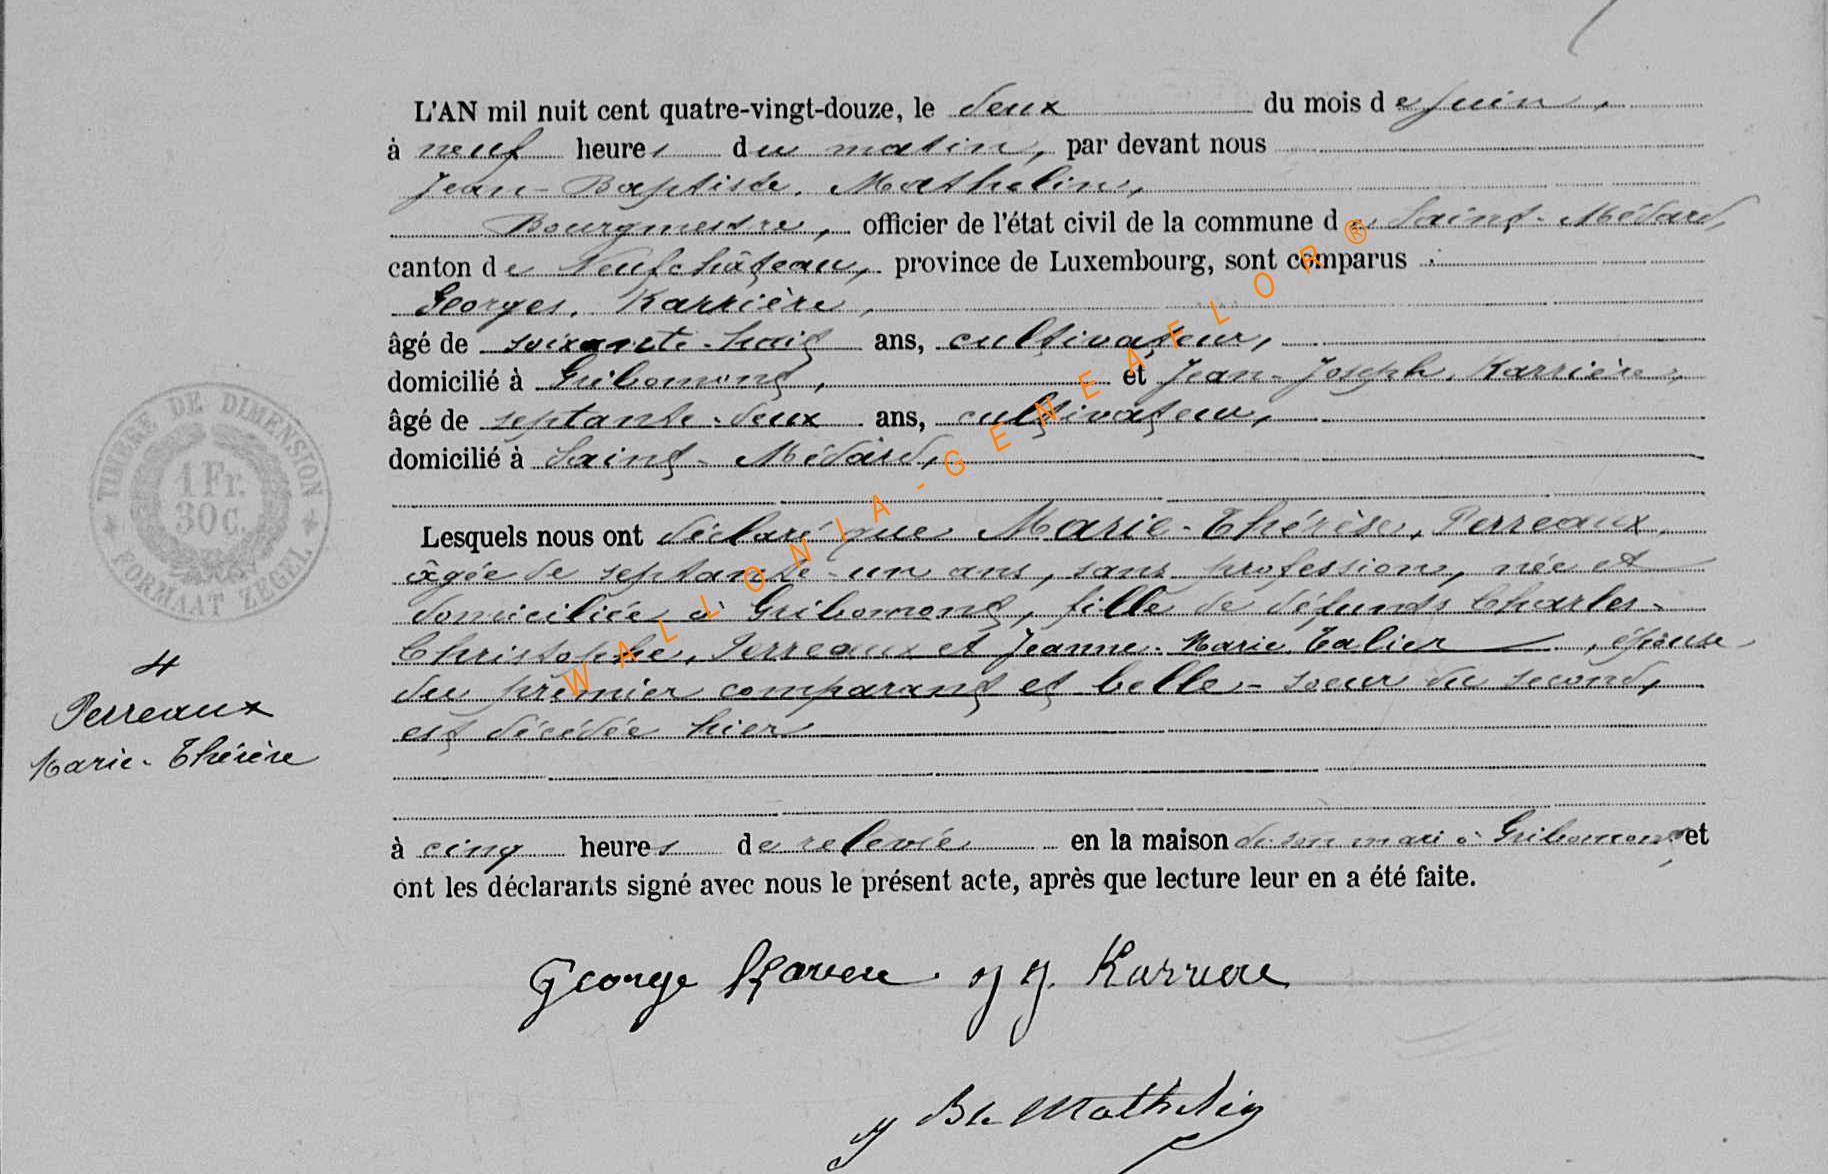 L'AN mil huit cent quatre-vingt-douze, le deux du mois de juin,
à neuf heures du matin, par devant nous
Jean-Baptiste. Mathelin,
Bourgmestre, officier de l'état civil de la commune de Saint-Médard,
canton de Neufchâteau, province de Luxembourg, sont comparus :
Georges. Karrière,
âgé de soixante-huit ans, cultivateur,
domicilié à Gribomont, et Jean-Joseph. Karrière,
âgé de septante-deux ans, cultivateur,
domicilié à Saint-Médard,
Lesquels nous ont déclaré que Marie-Thérèse, Perreaux,
âgée de septante-un ans, sans profession, née et
domiciliée à Gribomont, fille de défunts Charles-
Christophe, Perreaux et Jeanne-Marie Talier, épouse
du premier comparant et belle-soeur du second,
est décédée hier
à cinq heures de relevée en la maison de son mari à Gribomont, et
ont les déclarants signé avec nous le présent acte, après que lecture leur en a été faite.
George Karrere J J. Karriere
J Bte Mathelin
4
Perreaux
Marie-Thérèse
TIMBRE DE DIMENSION
1 Fr.
30 C.
FORMAAT ZEGEL
WALLONIA-GENEAFLOR®